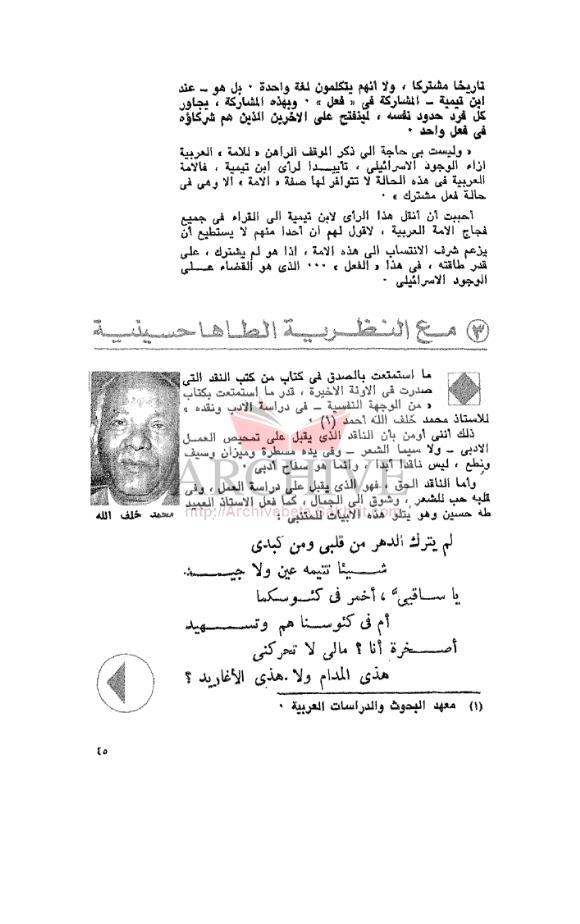 تاريخا مشتركا ، ولا أنهم يتكلمون لغة واحدة ٠ بل هو ــ عند
ابن تيمية ــ المشاركة فى « فعل » ٠ وبهذه المشاركة ، يجاور
كل فرد حدود نفسه ، لينفتح على الآخرين الذين هم شركاؤه
فى فعل واحد ٠
« وليست بى حاجة الى ذكر الموقف الراهن « للامة » العربية
ازاء الوجود الاسرائيلى ، تأييدا لرأى ابن تيمية ، فالامة
العربية فى هذه الحالة لا تتوافر لها صفة « الامة » الا وهى فى
حالة فعل مشترك » ٠
أحببت أن أنقل هذا الرأى لابن تيمية الى القراء فى جميع
فجاج الامة العربية ، لاقول لهم ان أحدا منهم لا يستطيع أن
يزعم شرف الانتساب الى هذه الامة ، اذا هو لم يشترك ، على
قدر طاقته ، فى هذا « الفعل » ٠٠٠ الذى هو القضاء عــلى
الوجود الاسرائيلى ٠
٣ مع النظرية الطاها حسينية
ما استمتعت بالصدق فى كتاب من كتب النقد التى
صدرت فى الآونة الاخيرة ، قدر ما استمتعت بكتاب
« من الوجهة النفسية ــ فى دراسة الادب ونقده »
للاستاذ محمد خلف الله أحمد (١) ٠
ذلك أننى أومن بأن الناقد الذى يقبل على تمحيص العمــل
الادبى ــ ولا سيما الشعر ــ وفى يده مسطرة وميزان وسيف
ونطع ، ليس ناقدا أبدا ، وانما هو سفاح أدبى ٠
وأما الناقد الحق ، فهو الذى يقبل على دراسة العمل ، وفى
قلبه حب للشعر ، وشوق الى الجمال ، كما فعل الاستاذ العميد
طه حسين وهو يتلو هذه الابيات للمتنبى :
محمد خلف الله
لم يترك الدهر من قلبى ومن كبدى
شــيئا تتيمه عين ولا جيــد
يا ســاقيىّ ، أخمر فى كئوسكما
أم فى كئوســنا هم وتســهيد
أصــخرة أنا ؟ مالى لا تحركنى
هذى المدام ولا هذى الأغاريد ؟
(١) معهد البحوث والدراسات العربية ٠
٤٥
ARCHIVE
http://Archivebeta.Sakhrit.com